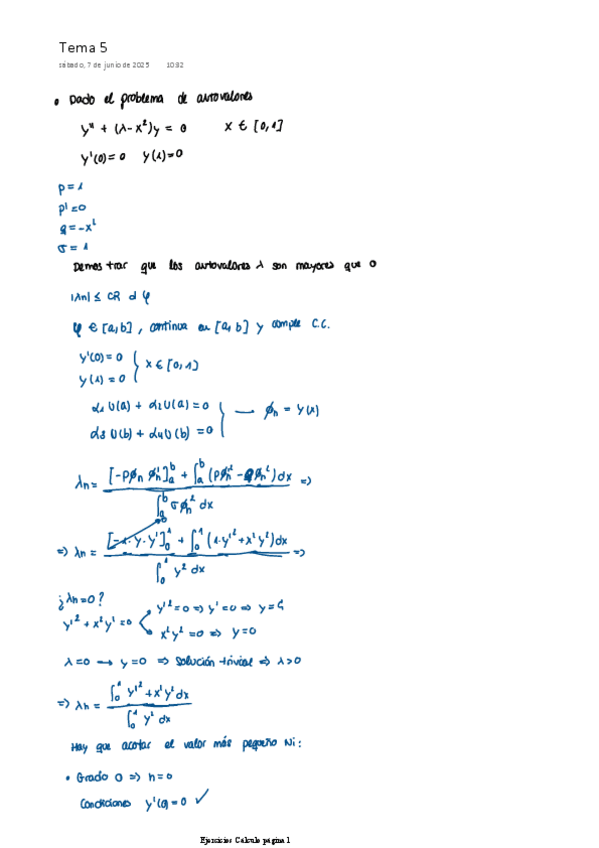 Tema 5
sábado, 7 de junio de 2025 10:32
• Dado el problema de autovalores
y'' + (λ-x²)y = 0 x ∈ [0,1]
y'(0)=0 y(1)=0
p=1
p'=0
q=-x²
σ=1
Demostrar que los autovalores λ son mayores que 0
|λn| ≤ CR d φ
φ ∈ [a,b], continua en [a,b] y cumple C.C.
y'(0)=0
y(1)=0 } x ∈ [0,1]
α₁U(a) + α₂U(a) = 0
α₃U(b) + α₄U(b) = 0 } — ϕn = y(x)
λn = [-pϕn ϕn']ₐᵇ + ∫ₐᵇ (pϕn'² - qϕn²)dx / ∫ₐᵇ σϕn² dx =>
=> λn = [-1·y·y']₀¹ + ∫₀¹ (1·y'² + x²y²)dx / ∫₀¹ y² dx =>
¿λn=0?
y'² + x²y² = 0 < y'²=0 => y'=0 => y=C₁
x²y²=0 => y=0
λ=0 → y=0 => Solución trivial => λ>0
=> λn = ∫₀¹ y'² + x²y² dx / ∫₀¹ y² dx
Hay que acotar el valor más pequeño
• Grado 0 => n=0
Condiciones y'(0)=0 ✓
Ejercicios Calculo pagina 1